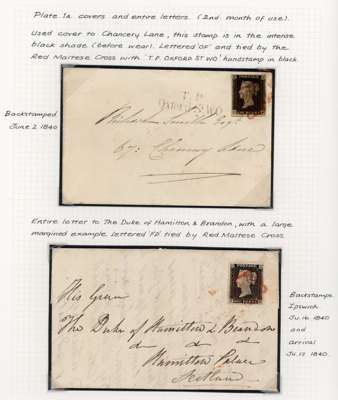 Plate 1a. covers and entire letters (2nd. month of use).
Used cover to Chancery Lane, this stamp is in the intense
black shade (before wear). Lettered 'OF' and tied by the
Red Maltese Cross with 'T.P. OXFORD ST WO' handstamp in black
Backstamped
June 2 1840
T.P.
Oxford St W.O
Richard Smith Esqr
67: Chancery Lane
Entire letter to The Duke of Hamilton & Brandon, with a large
margined example lettered 'FD' tied by Red Maltese Cross
His Grace
The Duke of Hamilton & Brandon
Hamilton Palace
Scotland
Backstamps
Ipswich
Ju. 14. 1840
and
arrival
Ju. 17. 1840.